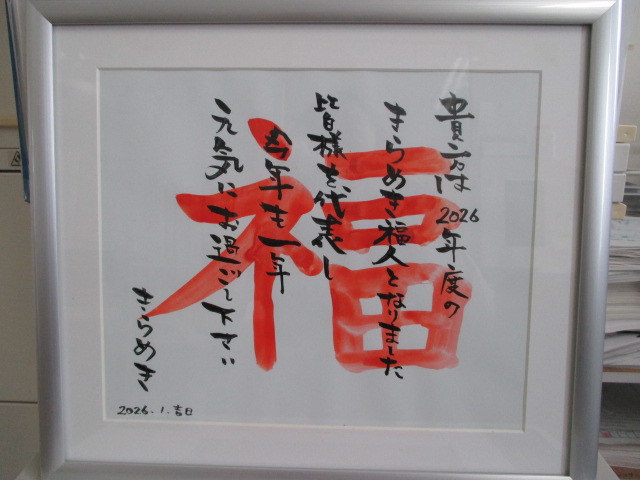 福
貴方は2026年度の
きらめき福人となりました
皆様を代表し
今年も一年
元気にお過ごし下さい
きらめき
2026.1.吉日